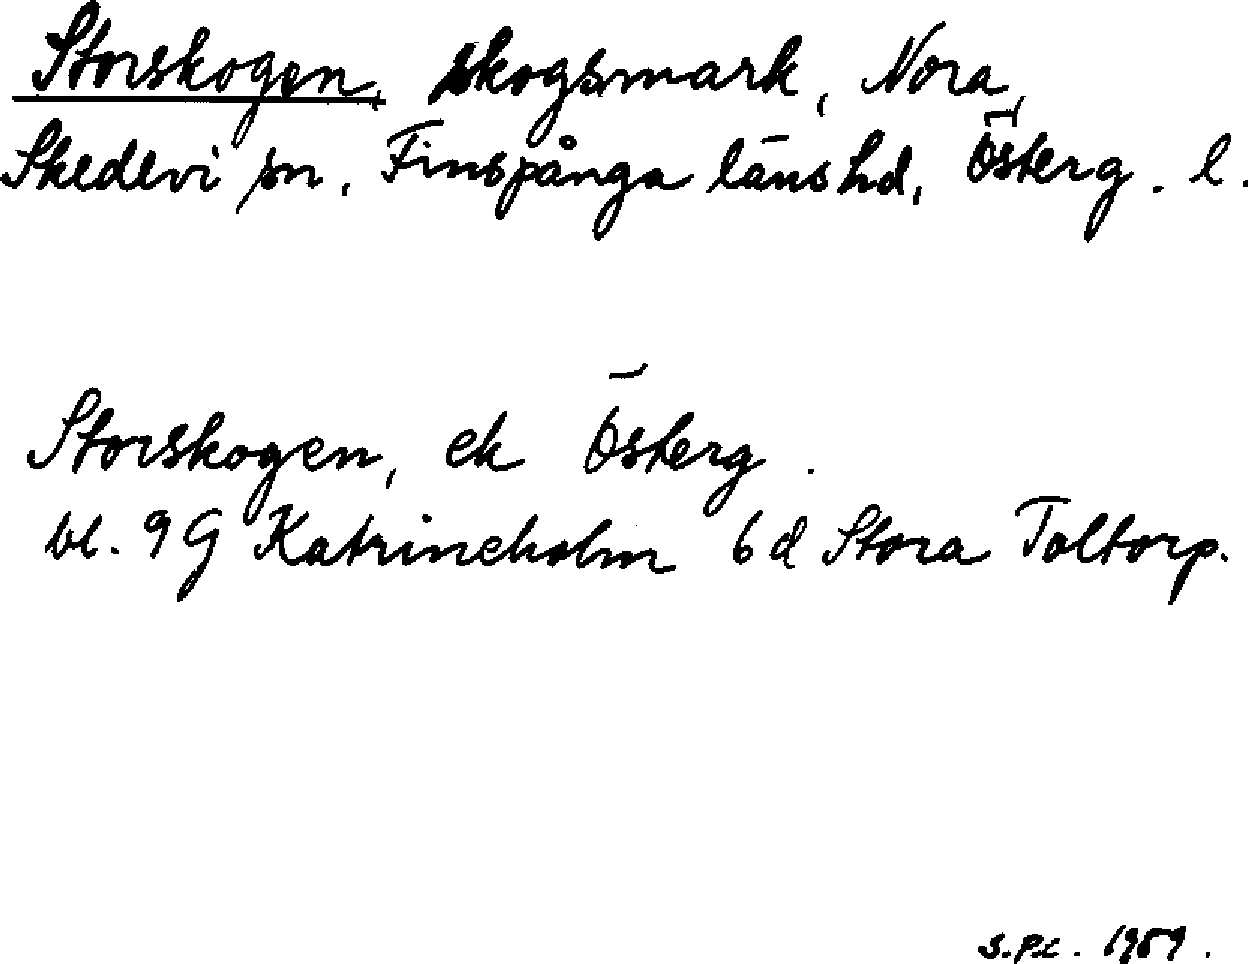 Storskogen, skogsmark, Nora,
Skedevi sn, Finspånga läns hd, Österg. l.
Storskogen, ek Österg.
bl. 9 G Katrineholm 6 d Stora Toltorp.
1989.